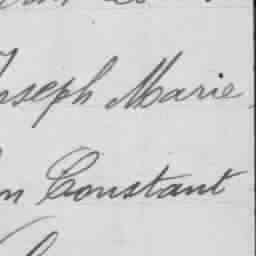 Joseph Marie
n Constant